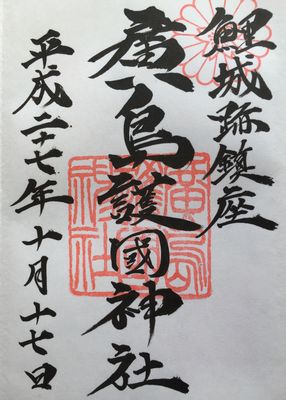 鯉城跡鎮座
廣島護國神社
平成二十七年十月十七日
廣島護國神社